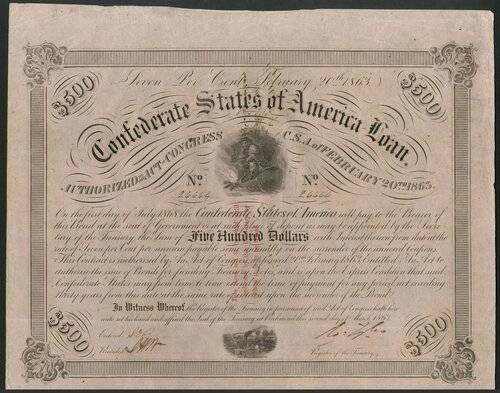 $500 $500
Seven Per Cent, February 20th 1863.
Confederate States of America Loan.
AUTHORIZED BY ACT OF CONGRESS C.S.A. of FEBRUARY 20TH 1863.
No. No.
On the first day of July 1868 the Confederate States of America will pay to the Bearer of
this Bond at the seat of Government or at such place of deposit as may be appointed by the Secre-
tary of the Treasury the Sum of Five Hundred Dollars with Interest thereon from date at the
rate of Seven per Cent per annum payable semi annually on the surrender of the annexed Coupons.
This Contract is authorized by An Act of Congress approved 20th February 1863, Entitled: An Act to
authorize the issue of Bonds for funding Treasury Notes, and is upon the Express Condition that said
Confederate States may from time to time extend the time of payment for any period not exceeding
Thirty years from this date at the same rate of interest upon the surrender of the Bond.
In Witness Whereof, the Register of the Treasury in pursuance of said Act of Congress hath here-
unto set his hand and affixed the Seal of the Treasury at Richmond this second day of March 1863.
Entered
Recorded
Register of the Treasury.
$500 $500